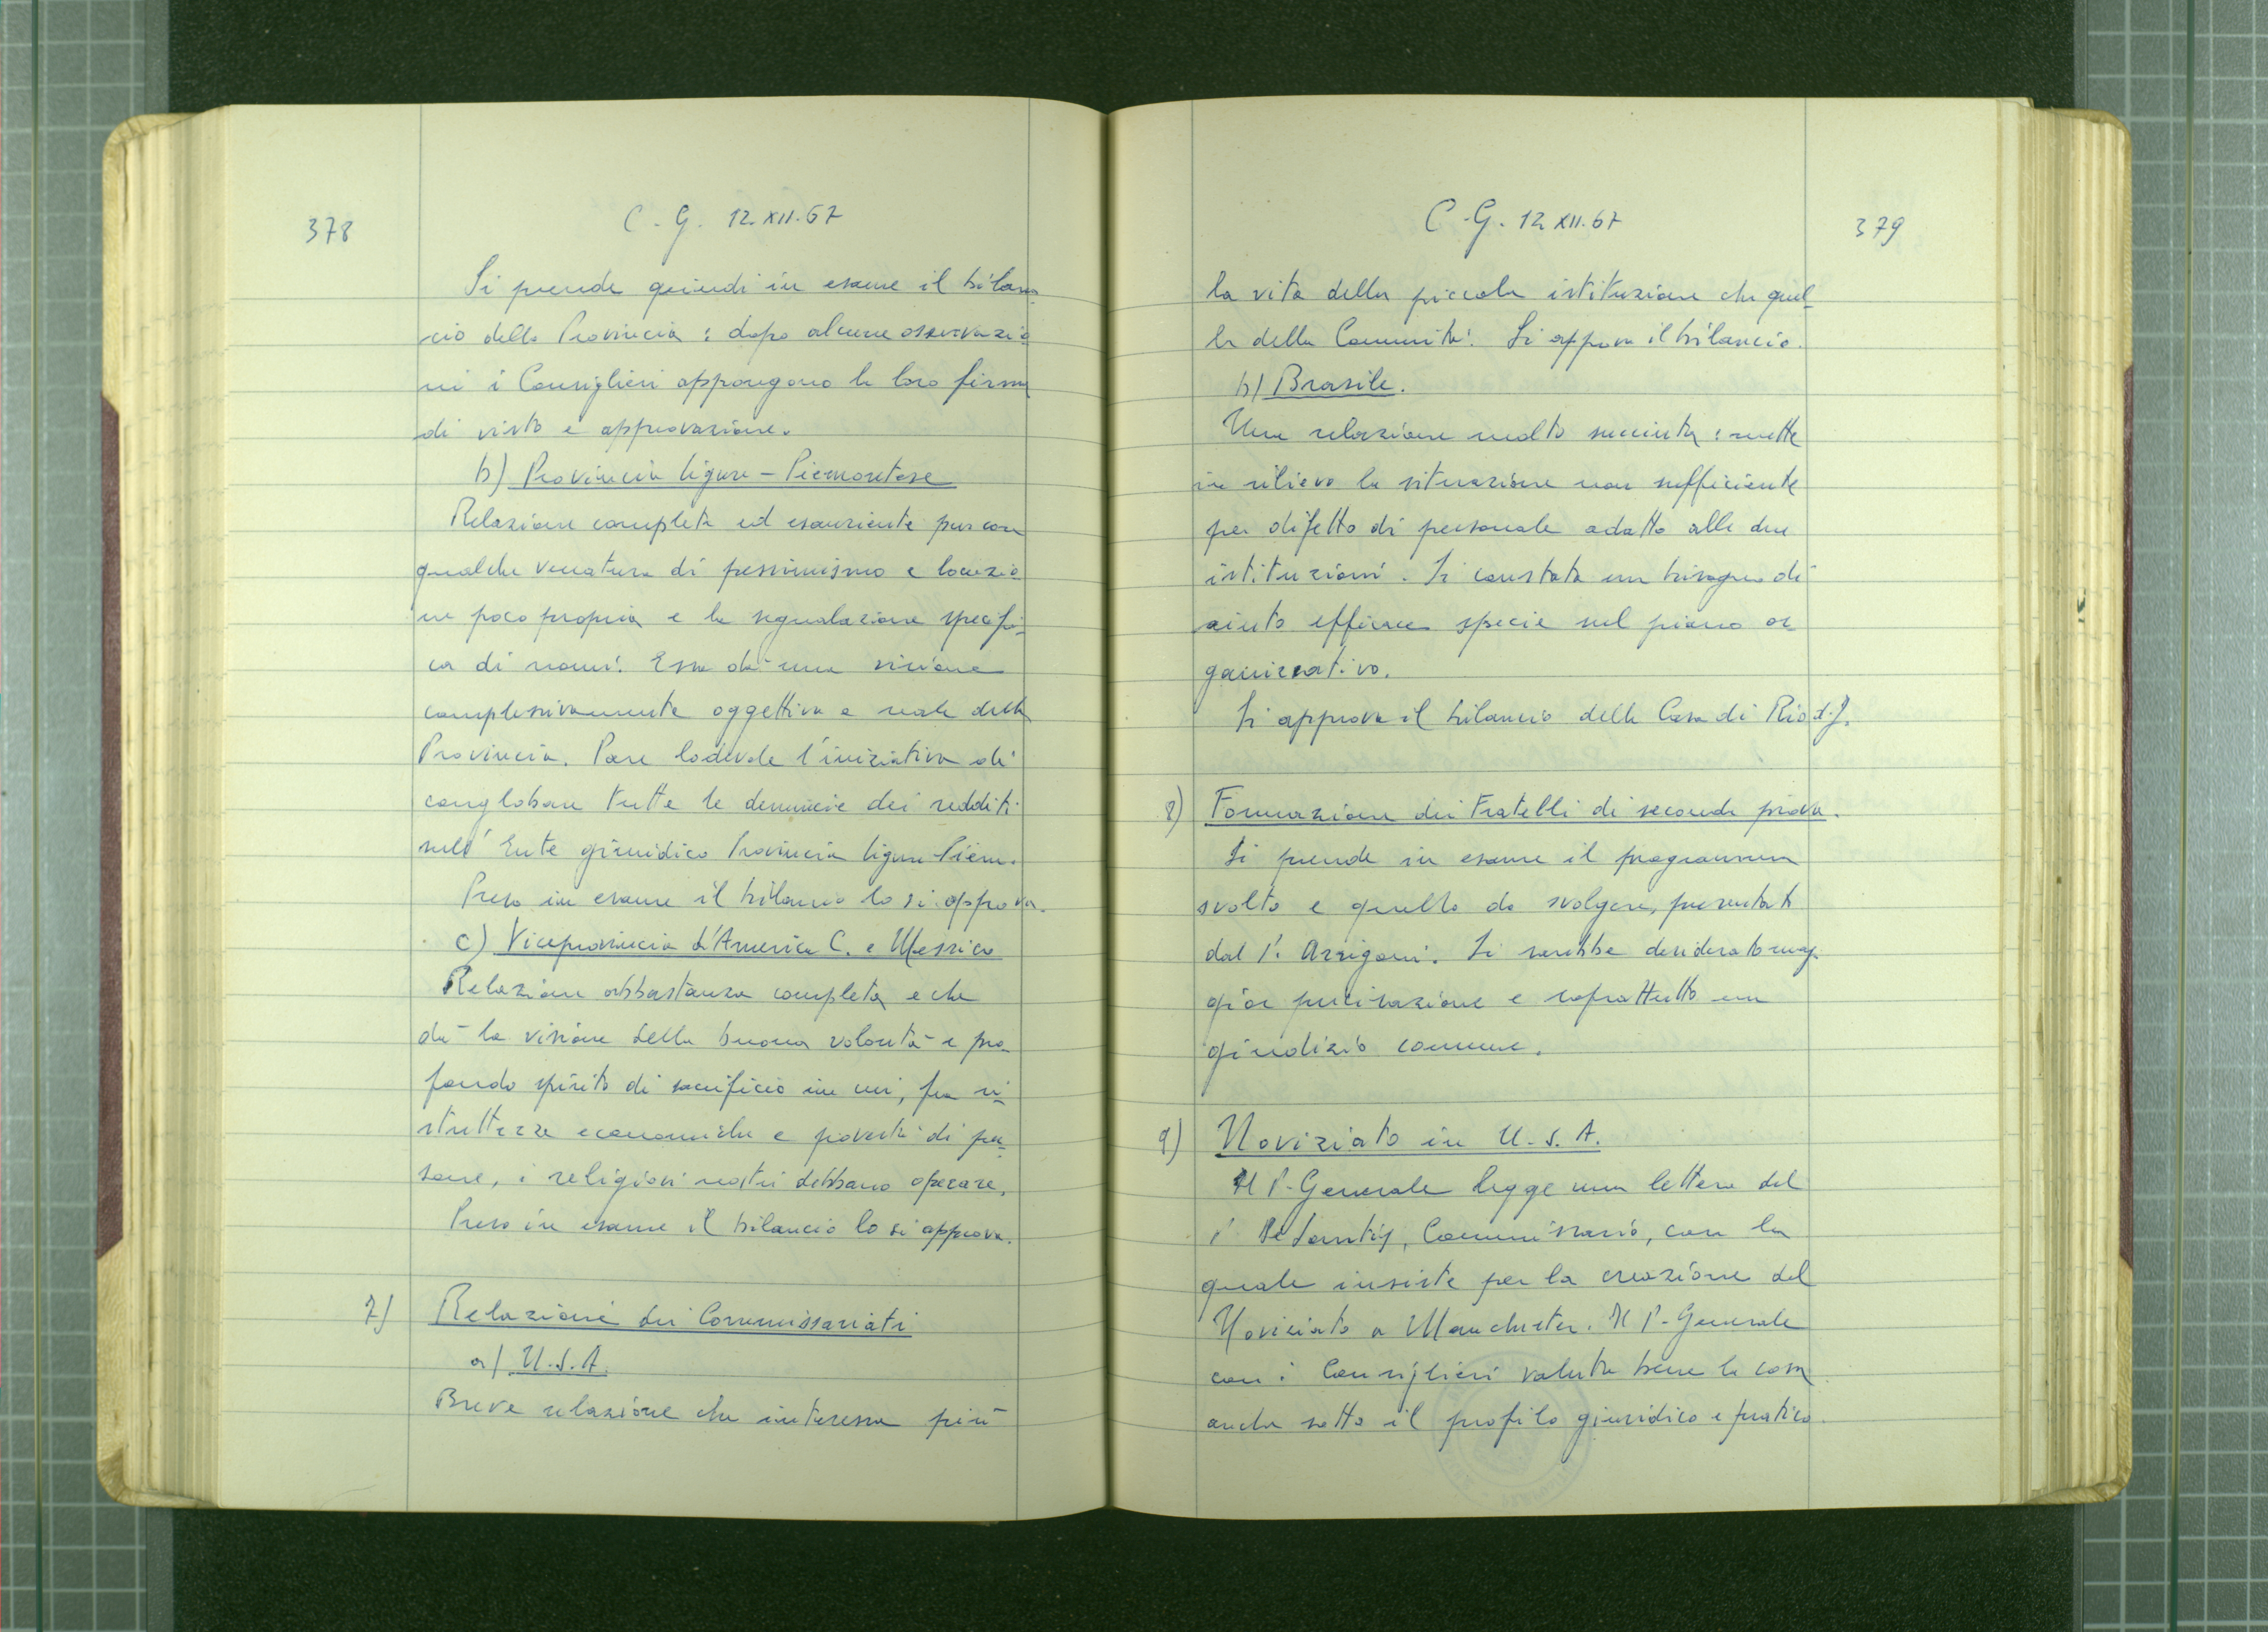 378
C. G. 12.XII.67
Si prende quindi in esame il bilan-
cio della Provincia : dopo alcune osservazio
ni i Consiglieri appongono la loro firma
di visto e approvazione.
b) Provincia Ligure - Piemontese
Relazione completa ed esauriente pur con
qualche venatura di pessimismo e locuzio
ne poco propria e la segnalazione specifi-
ca di nomi. Essa dà una visione
complessivamente oggettiva e reale della
Provincia. Pare lodevole l'iniziativa di
conglobare tutte le denuncie dei redditi
nell'Ente giuridico Provincia Ligure Piem.
Preso in esame il bilancio lo si approva.
c) Viceprovincia d'America C. e Messico
Relazione abbastanza completa e che
dà la visione della buona volontà e pro-
fondo spirito di sacrificio in cui, fra ri-
strettezze economiche e povertà di per-
sone, i religiosi nostri debbano operare.
Preso in esame il bilancio lo si approva.
7) Relazioni dei Commissariati
a) U.S.A.
Breve relazione che interessa più
C.G. 12 XII.67
379
la vita della piccola istituzione che quel-
la della Comunità. Si approva il bilancio.
b) Brasile.
Una relazione molto succinta : mette
in rilievo la situazione non sufficiente
per difetto di personale adatto alle due
istituzioni. Si constata un bisogno di
aiuto efficace specie sul piano or
ganizzativo.
Si approva il bilancio della Casa di Rio d.J.
8) Formazione dei Fratelli di seconda prova.
Si prende in esame il programma
svolto e quello da svolgere, presentati
dal P. Arrigoni. Si sarebbe desiderato mag-
gior precisazione e soprattutto un
giudizio comune.
9) Noviziato in U.S.A.
Il P. Generale legge una lettera del
P. De Santis, Commissario, con la
quale insiste per la creazione del
Noviziato a Manchester. Il P. Generale
con i Consiglieri valuta bene la cosa
anche sotto il profilo giuridico e pratico.